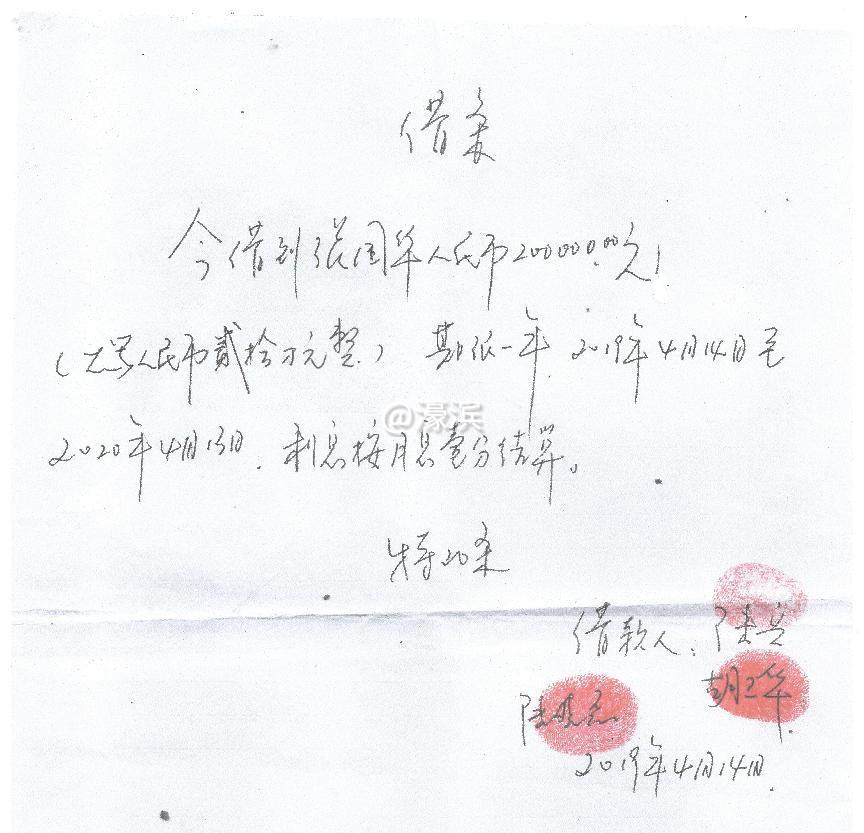 借条
今借到张国华人民币200000.00元
(大写人民币贰拾万元整) 期限一年 2019年4月14日至
@濠浜
2020年4月13日,利息按月息壹分结算。
特此条
借款人:陆兵
胡卫华
2019年4月14日